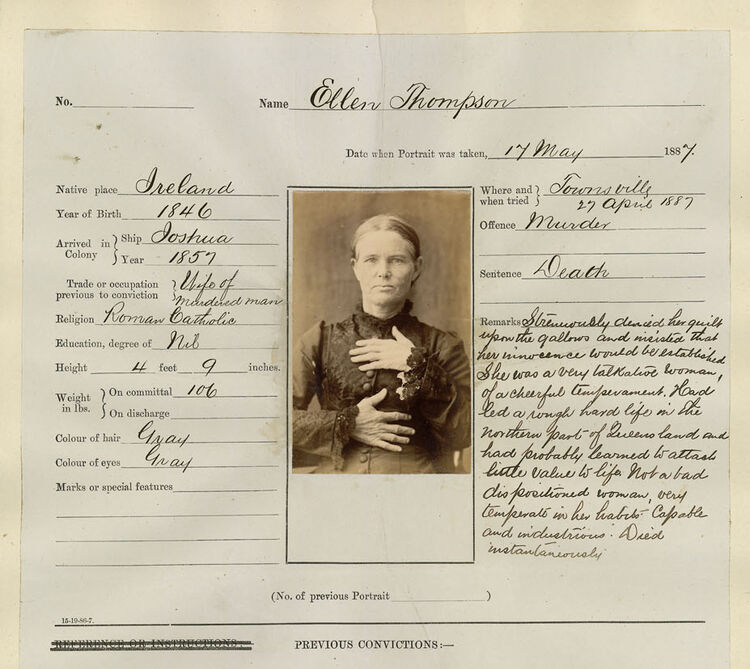 No.
Name Ellen Thompson
Date when Portrait was taken, 17 May 1887.
Native place Ireland
Year of Birth 1846
Arrived in Colony } Ship Joshua
Year 1857
Trade or occupation previous to conviction } Wife of
murdered man
Religion Roman Catholic
Education, degree of Nil
Height 4 feet 9 inches.
Weight in lbs. { On committal 106
On discharge
Colour of hair Gray
Colour of eyes Gray
Marks or special features
Where and when tried } Townsville
27 April 1887
Offence Murder
Sentence Death
Remarks Strenuously denied her guilt
upon the gallows and insisted that
her innocence would be established
She was a very talkative woman,
of a cheerful temperament. Had
led a rough hard life in the
northern part of Queensland and
had probably learned to attach
little value to life. Not a bad
dispositioned woman, very
temperate in her habits - Capable
and industrious. Died
instantaneously
(No. of previous Portrait )
15-19-86-7.
REFERENCE OR INSTRUCTIONS
PREVIOUS CONVICTIONS:—